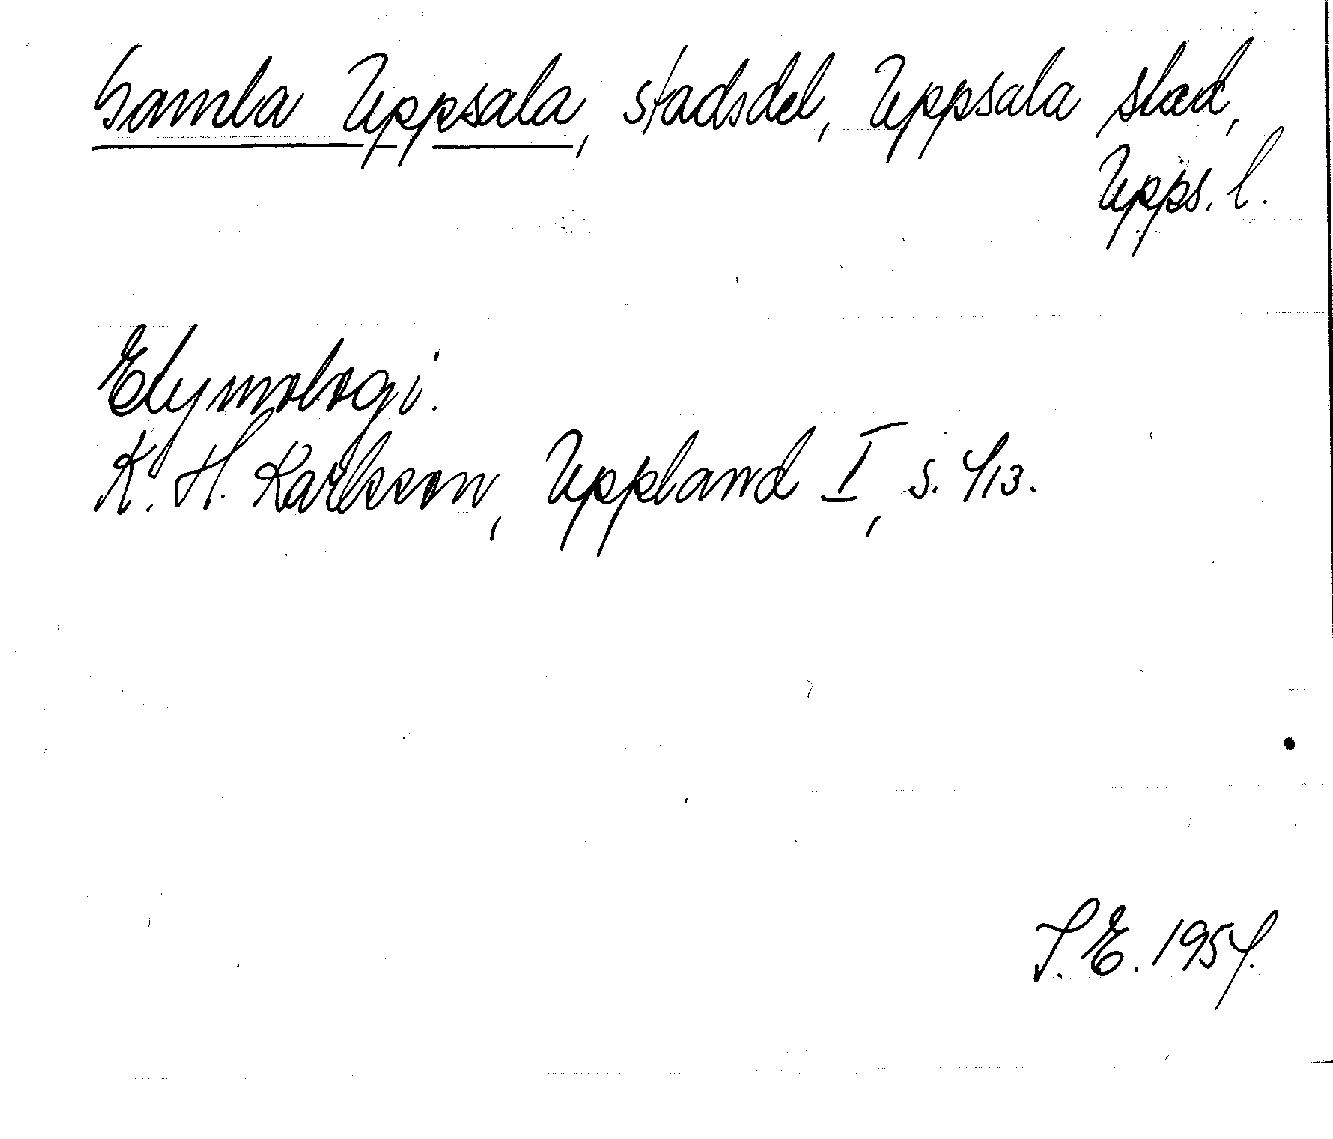 Gamla Uppsala, stadsdel, Uppsala stad,
Upps. l.
Etymologi.
K. H. Karlsson, Uppland I, s. 413.
S. E. 1954.